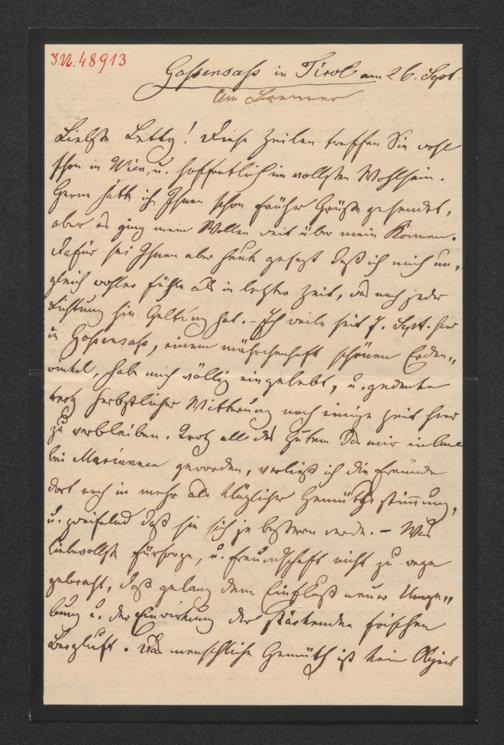 I.N. 48913
Gossensass in Tirol am 26. Sept.
Am Brenner
Liebste Betty! Diese Zeilen treffen Sie wohl
schon in Wien, u. hoffentlich im vollsten Wohlsein.
Gern hätte ich Ihnen schon früher Grüße gesendet,
aber es ging mein Wollen weit über mein Können.
Dafür sei Ihnen aber heute gesagt daß ich mich un„
gleich wohler fühle als in letzter Zeit, was nach jeder
Richtung hin Geltung hat. – Ich weile seit 7. Sept. hier
in Gossensass, einem märchenhaft schönen Erden„
winkel, habe mich völlig eingelebt, u. gedenke
trotz herbstlicher Witterung noch einige Zeit hier
zu verbleiben. Trotz all des Guten das mir in
bei Marianne geworden, verließ ich die Freunde
dort noch in mehr als kläglicher Gemüthsstimmung,
u. zweifelnd daß sie sich je bessern werde. – Was
liebevollste Fürsorge, u. Freundschaft nicht zu wege
gebracht, das gelang dem Einfluß neuer Umge„
bung u. der Einwirkung der stärkenden frischen
Bergluft. Das menschliche Gemüth ist kein Object